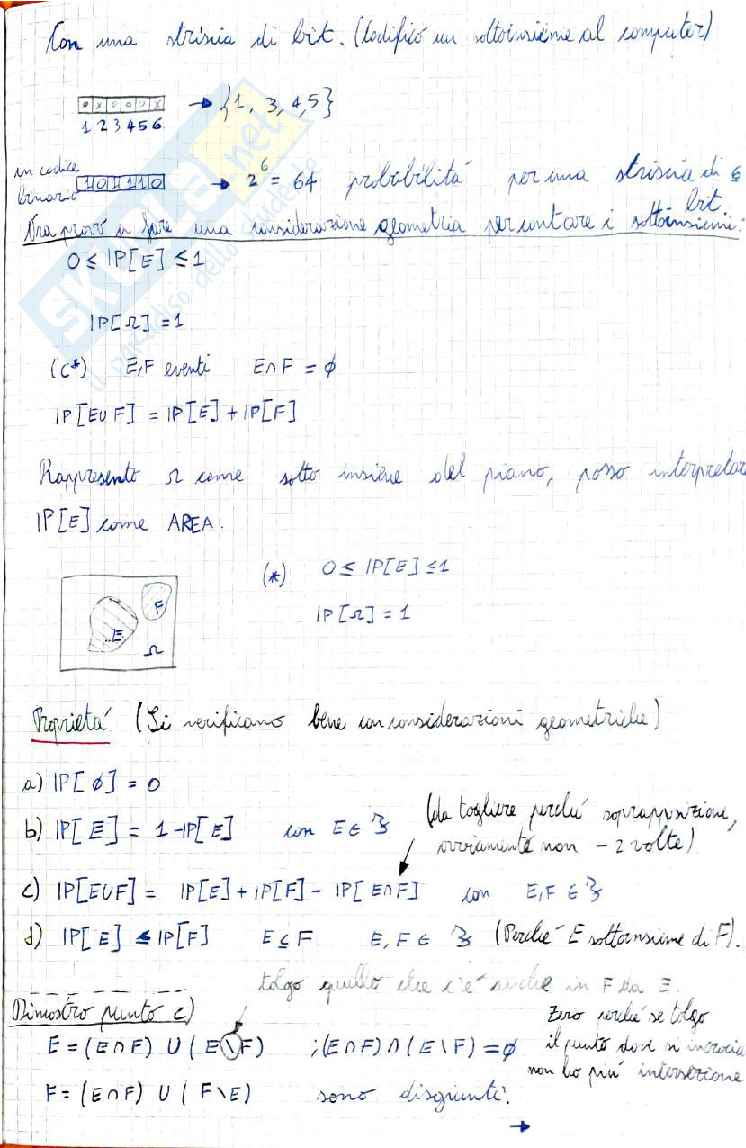 Con una striscia di bit. (Codifico un sottoinsieme al computer)
→ {1, 3, 4,5}
1 2 3 4 5 6
in codice
binario
1 0 1 1 1 0 → 2^6 = 64 probabilitá per una striscia di 6
bit.
Ora provo a fare una considerazione geometria per contare i sottoinsiemi:
0 ≤ IP[E] ≤ 1
IP[Ω] = 1
(C*) E,F eventi E∩F = ∅
IP[E∪F] = IP[E] + IP[F]
Rappresento Ω come sotto insieme del piano, posso interpretare
IP[E] come AREA.
(*) 0 ≤ IP[E] ≤ 1
IP[Ω] = 1
F
E
Ω
Proprietá (Si verificano bene con considerazioni geometriche)
a) IP[∅] = 0
b) IP[E̅] = 1 - IP[E] con E ∈ ℱ
(da togliere perché sovrapposizione,
ovviamente non - 2 volte)
c) IP[E∪F] = IP[E] + IP[F] - IP[E∩F] con E,F ∈ ℱ
d) IP[E] ≤ IP[F] E ⊆ F E, F ∈ ℱ (Perché E sottoinsieme di F).
tolgo quello che c'é anche in F da E.
Dimostro punto c)
E = (E∩F) ∪ (E\F) ; (E∩F) ∩ (E\F) = ∅
F = (E∩F) ∪ (F\E) sono disgiunti.
Zero perché se tolgo
il punto dove si incrocia
non ho piú intersezione
→
skuola.net
il paradiso dello studente